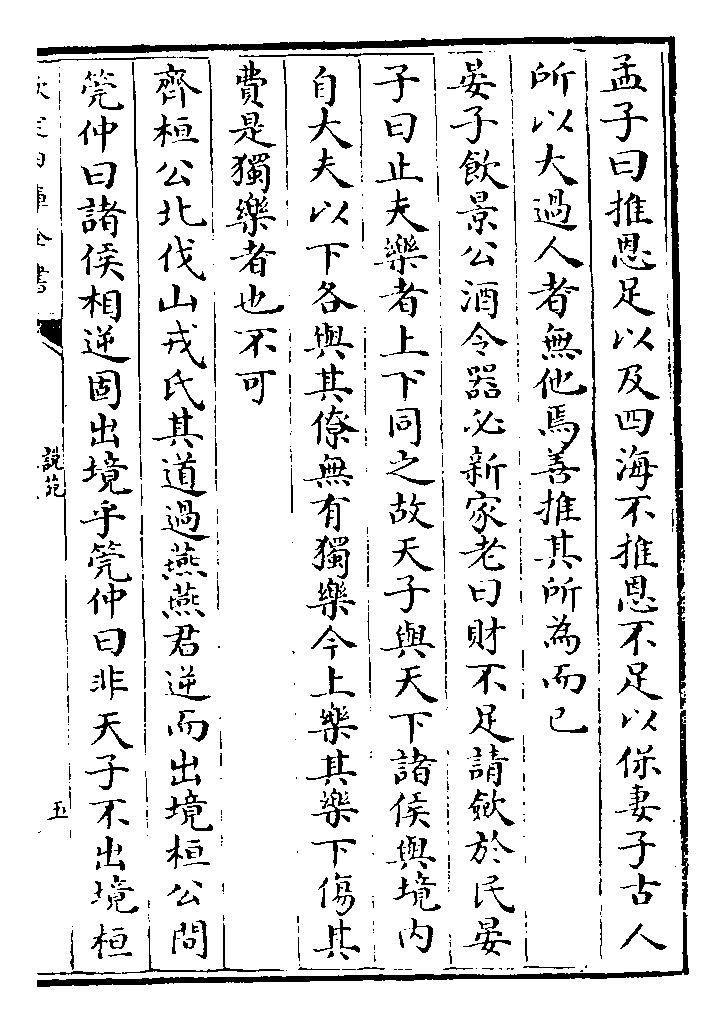 孟子曰推恩足以及四海不推恩不足以保妻子古人
所以大過人者無他焉善推其所為而已
晏子飲景公酒令器必新家老曰財不足請斂於民晏
子曰止夫樂者上下同之故天子與天下諸侯與境内
自大夫以下各與其僚無有獨樂今上樂其樂下傷其
費是獨樂者也不可
齊桓公北伐山戎氏其道過燕燕君逆而出境桓公問
管仲曰諸侯相逆固出境乎管仲曰非天子不出境桓
欽定四庫全書
說苑
五